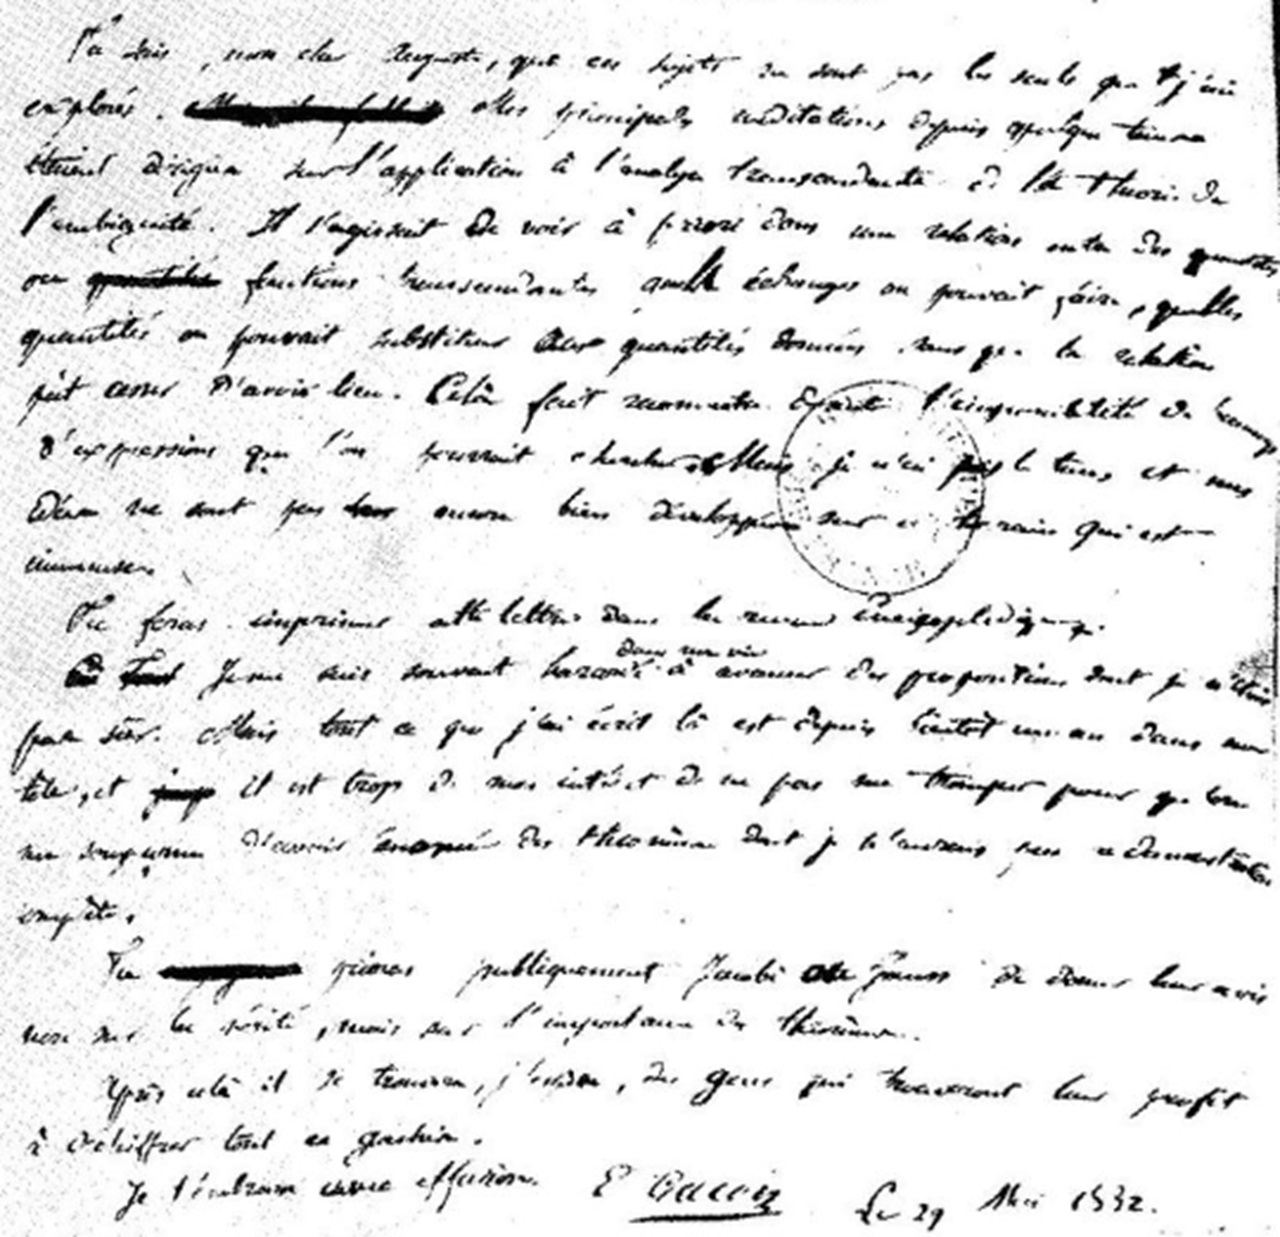 Tu sais, mon cher Auguste, que ces sujets ne sont pas les seuls que j'aie
explorés. Mes principales méditations depuis quelque temps
étaient dirigées sur l'application à l'analyse transcendante de la théorie de
l'ambiguité. Il s'agissait de voir à priori dans une relation entre des quantités
ou fonctions transcendantes quels échanges on pouvait faire, quelles
quantités on pouvait substituer aux quantités données sans que la relation
put cesser d'avoir lieu. Celà fait reconnaitre l'impossibilité de beaucoup
d'expressions que l'on pourrait chercher. Mais je n'ai pas le tems et mes
idées ne sont pas encore bien développées sur ce terrain qui est
immense.
Tu feras imprimer cette lettre dans la revue Encyclopédique.
dans ma vie
Je me suis souvent hazardé à avancer des propositions dont je n'étais
pas sûr. Mais tout ce que j'ai écrit là est depuis bientôt un an dans ma
tête, et il est trop de mon intérêt de ne pas me tromper pour qu'on
me soupçonne d'avoir énoncé des théorèmes dont je n'aurais pas la démonstration
complète.
Tu prieras publiquement Jacobi ou Gauss de donner leur avis
non sur la vérité, mais sur l'importance des théorèmes.
Après celà il se trouvera, j'espère, des gens qui trouveront leur profit
à déchiffrer tout ce gachis.
Je t'embrasse avec effusion. E Galois Le 29 Mai 1832.